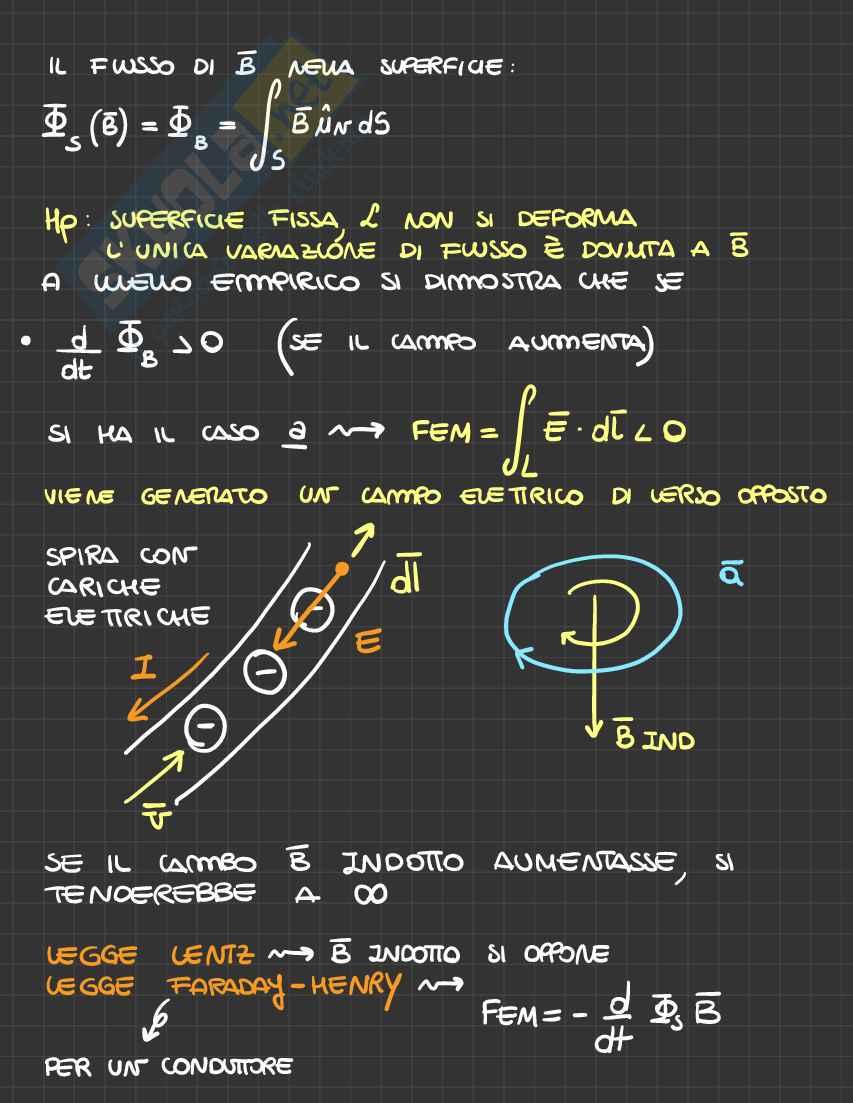 IL FLUSSO DI B̅ NELLA SUPERFICIE:
Φ̅_S (B̅) = Φ̅_B = ∫_S B̅ û_N dS
Hp: SUPERFICIE FISSA, L NON SI DEFORMA
L'UNICA VARIAZIONE DI FLUSSO È DOVUTA A B̅
A LIVELLO EMPIRICO SI DIMOSTRA CHE SE
• d/dt Φ̅_B > 0 (SE IL CAMPO AUMENTA)
SI HA IL CASO a ⇝ FEM = ∫_L E̅ · dl̅ < 0
VIENE GENERATO UN CAMPO ELETTRICO DI VERSO OPPOSTO
SPIRA CON
CARICHE
ELETTRICHE
dl̅
a̅
E
I
B̅ IND
v̅
SE IL CAMBO B̅ INDOTTO AUMENTASSE, SI
TENDEREBBE A ∞
LEGGE LENTZ ⇝ B̅ INDOTTO SI OPPONE
LEGGE FARADAY-HENRY ⇝
FEM = - d/dt Φ̅_S B̅
PER UN CONDUTTORE
SKUOLA.net